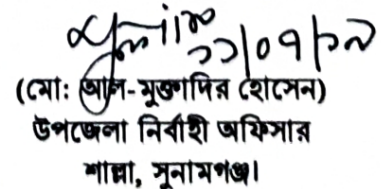 ২২/০৭/১৯
(মো: আল-মুক্তাদির হোসেন)
উপজেলা নির্বাহী অফিসার
শাল্লা, সুনামগঞ্জ।